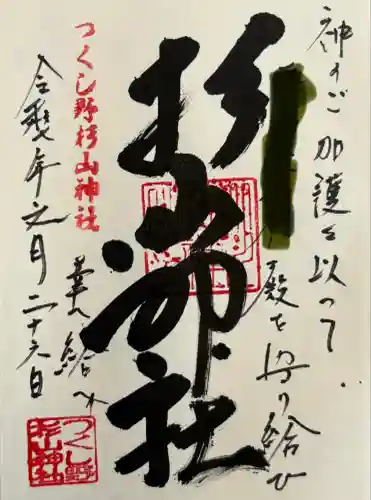 神のご加護を以って
殿を守り給ひ
杉山神社
幸へ給へ
つくし野杉山神社
年七月二十六日
つくし野
杉山神社